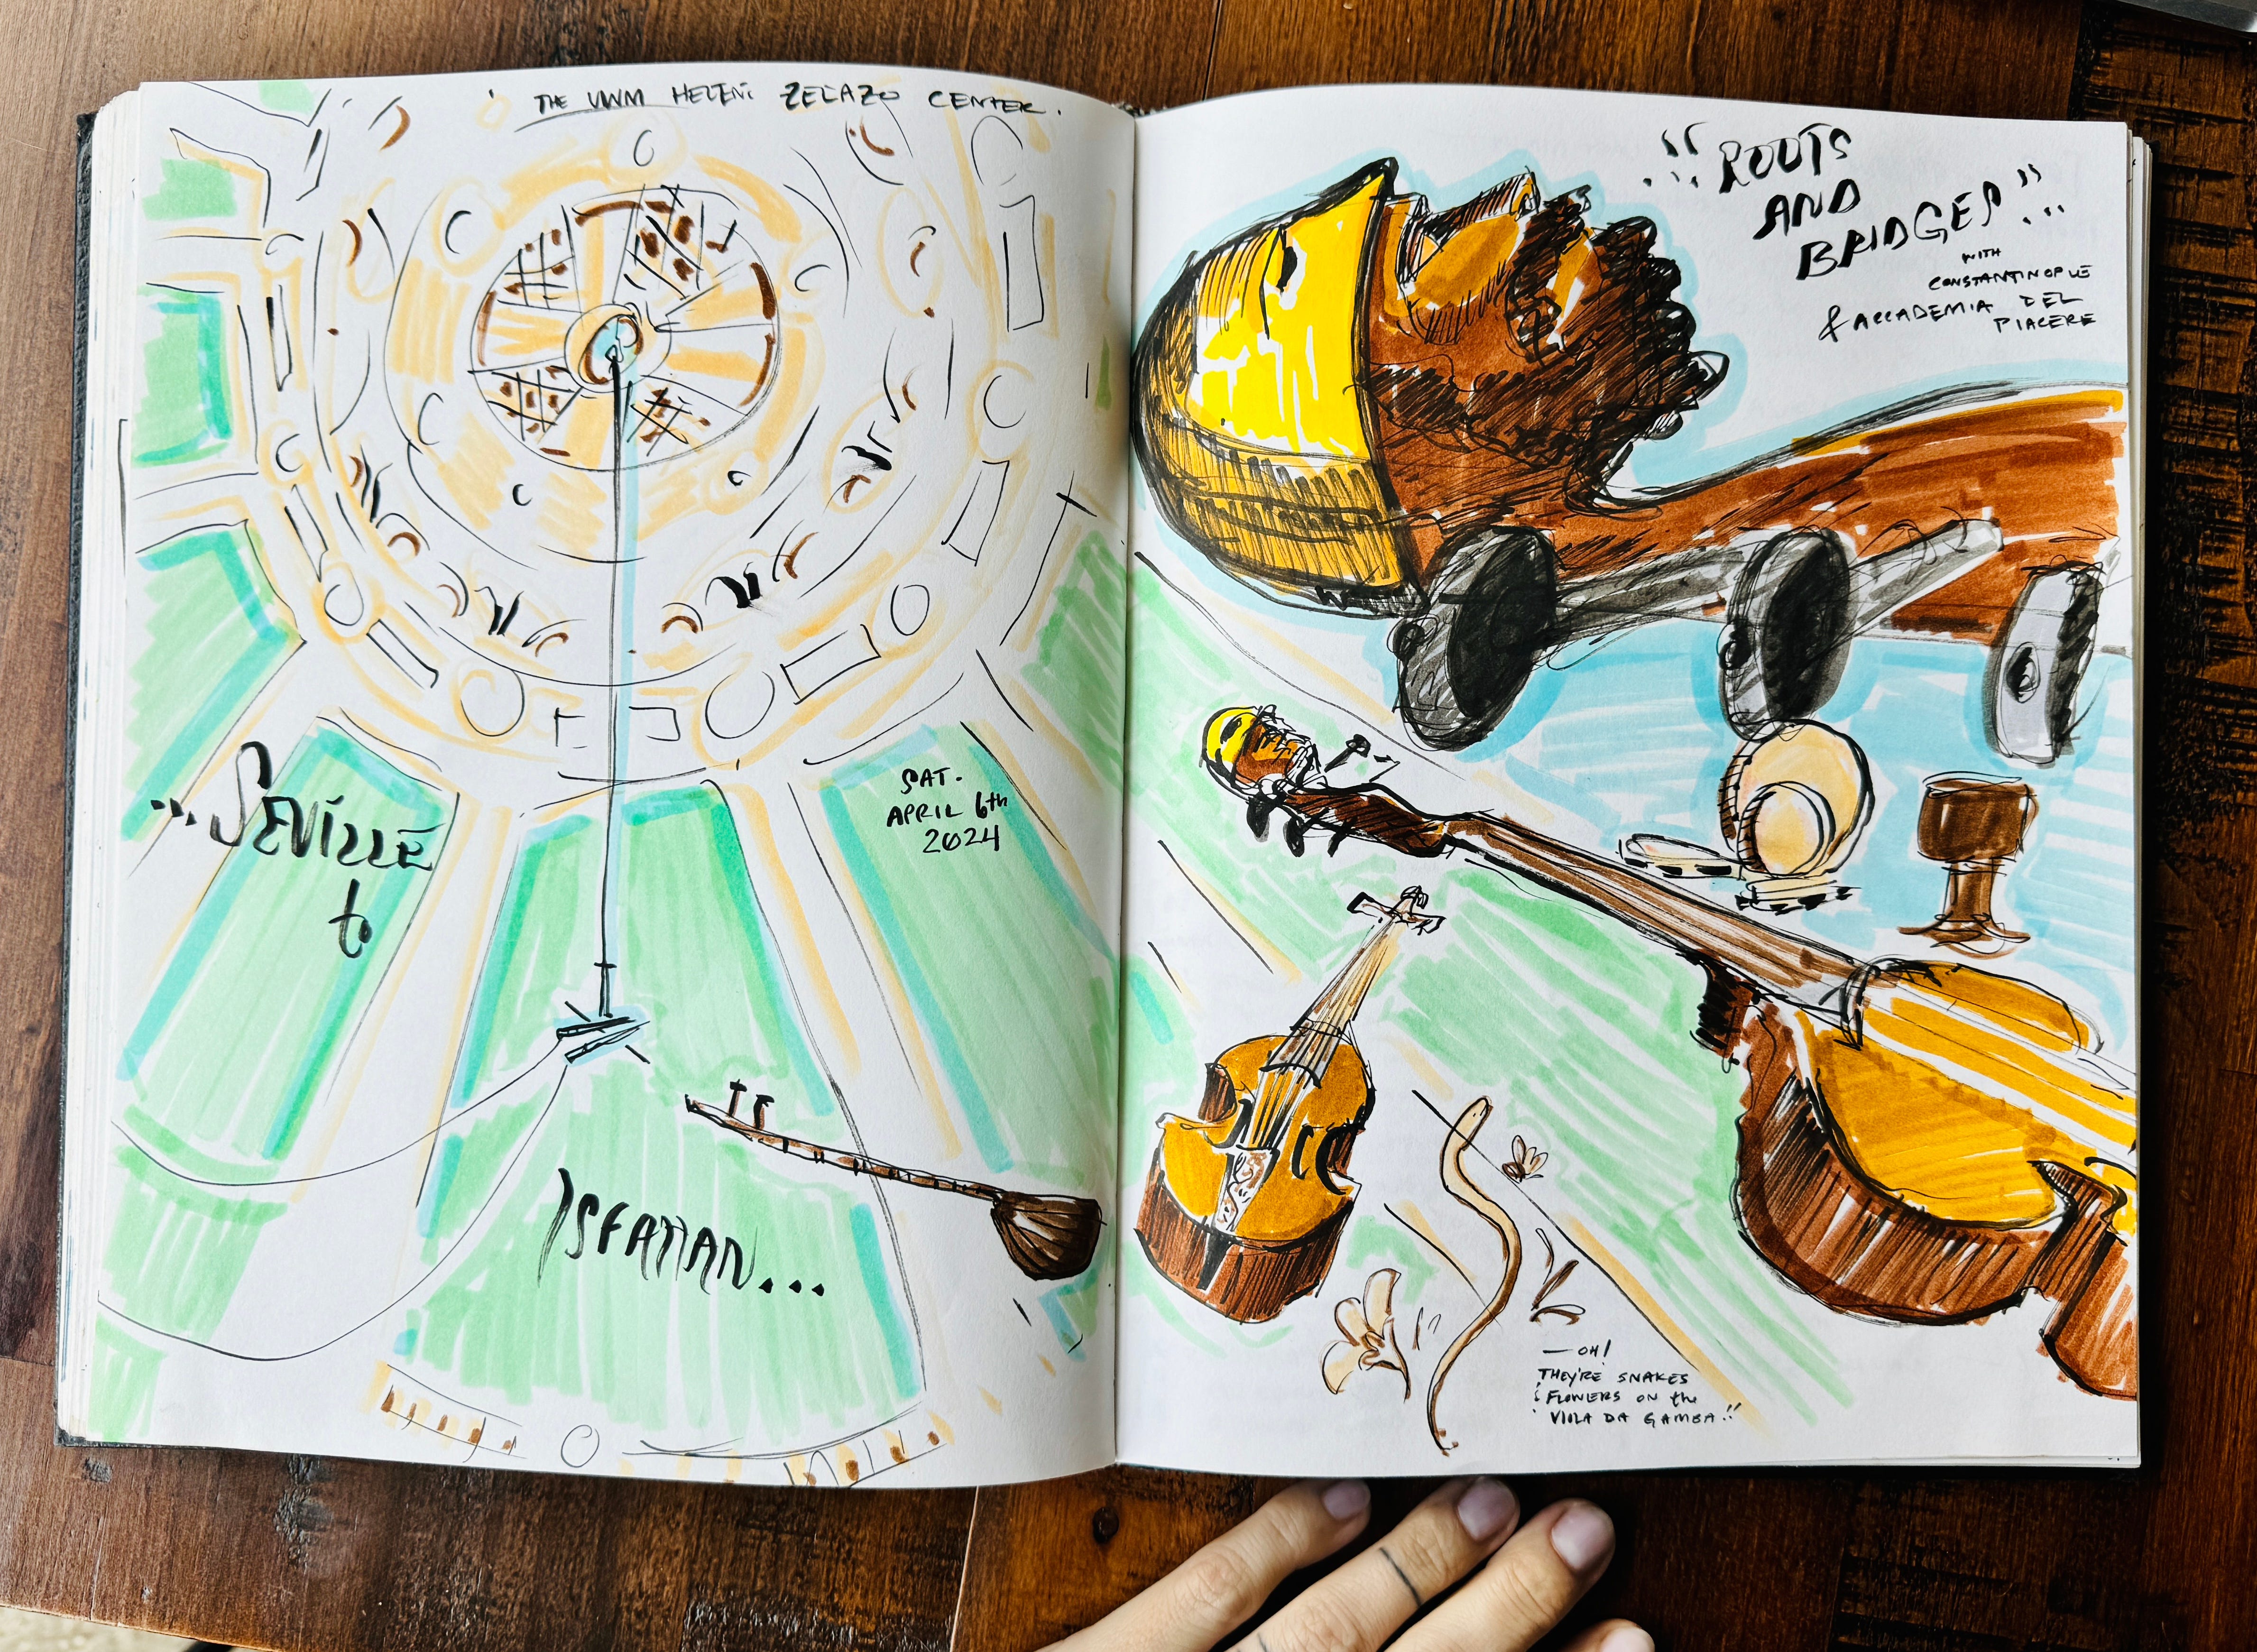 THE UWM HELENE ZELAZO CENTER.
...SEVILLE
to
ISFAHAN...
SAT.
APRIL 6th
2024
"ROOTS
AND
BRIDGES"...
WITH
CONSTANTINOPLE
& ACCADEMIA DEL
PIACERE
— OH!
THEY'RE SNAKES
& FLOWERS ON the
VIOLA DA GAMBA!!